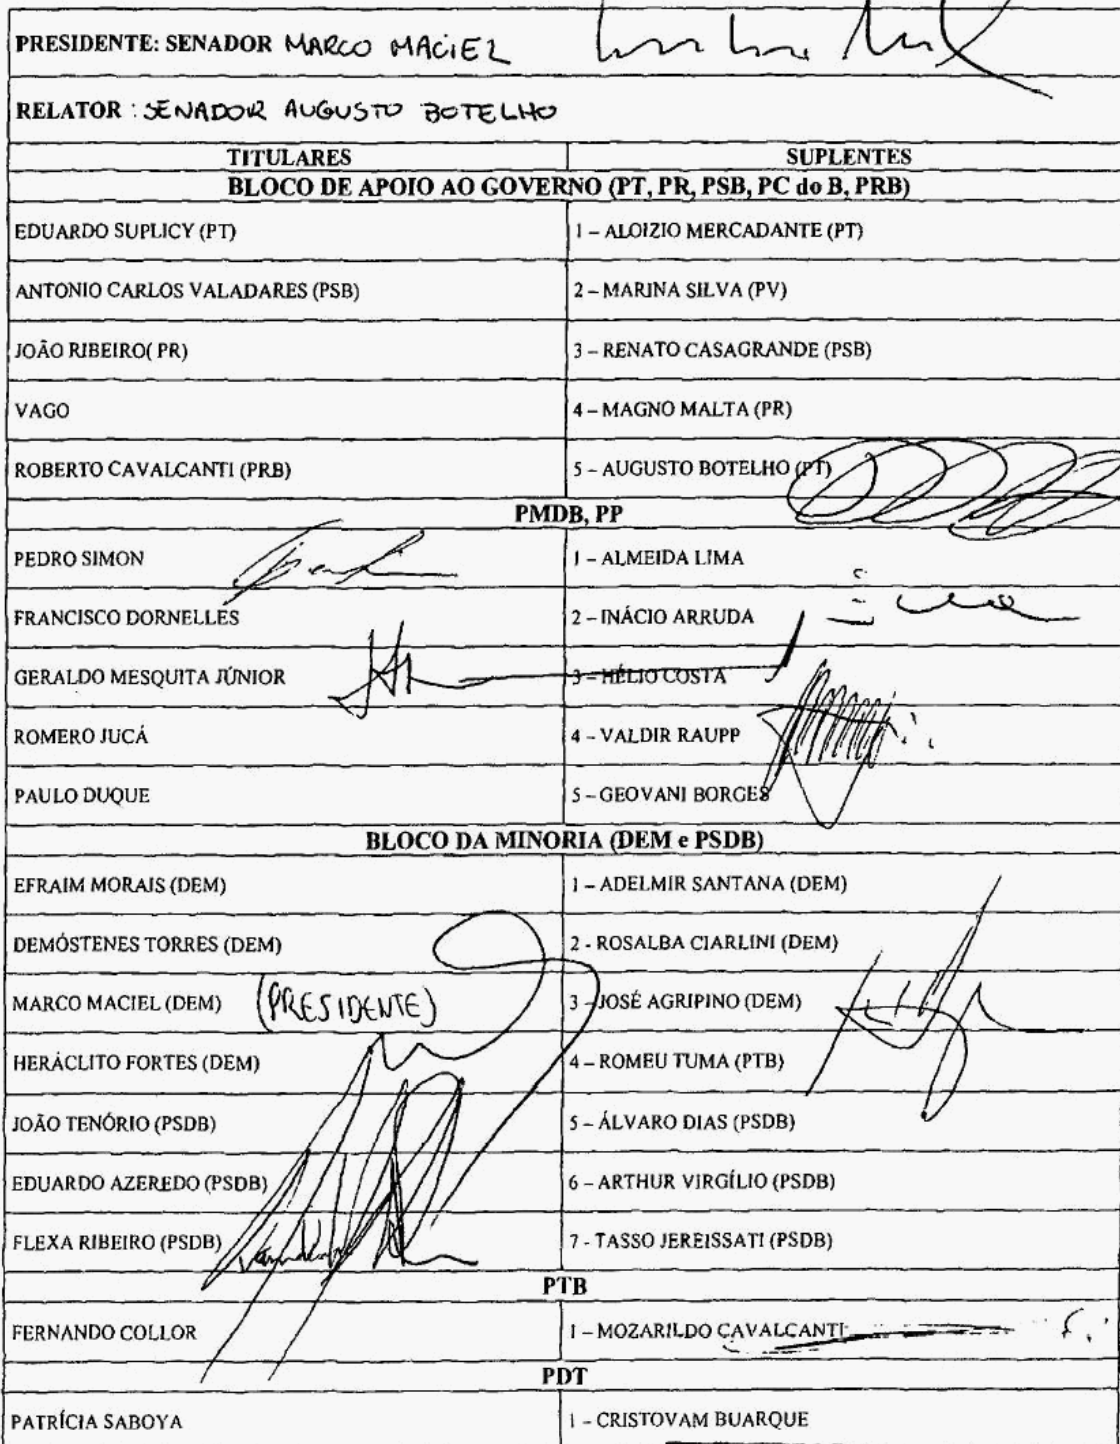 PRESIDENTE: SENADOR MARCO MACIEL
RELATOR : SENADOR AUGUSTO BOTELHO
TITULARES SUPLENTES
BLOCO DE APOIO AO GOVERNO (PT, PR, PSB, PC do B, PRB)
EDUARDO SUPLICY (PT) 1 – ALOIZIO MERCADANTE (PT)
ANTONIO CARLOS VALADARES (PSB) 2 – MARINA SILVA (PV)
JOÃO RIBEIRO( PR) 3 – RENATO CASAGRANDE (PSB)
VAGO 4 – MAGNO MALTA (PR)
ROBERTO CAVALCANTI (PRB) 5 – AUGUSTO BOTELHO (PT)
PMDB, PP
PEDRO SIMON 1 – ALMEIDA LIMA
FRANCISCO DORNELLES 2 – INÁCIO ARRUDA
GERALDO MESQUITA JÚNIOR 3 – HÉLIO COSTA
ROMERO JUCÁ 4 – VALDIR RAUPP
PAULO DUQUE 5 – GEOVANI BORGES
BLOCO DA MINORIA (DEM e PSDB)
EFRAIM MORAIS (DEM) 1 – ADELMIR SANTANA (DEM)
DEMÓSTENES TORRES (DEM) 2 - ROSALBA CIARLINI (DEM)
MARCO MACIEL (DEM) (PRESIDENTE) 3 – JOSÉ AGRIPINO (DEM)
HERÁCLITO FORTES (DEM) 4 – ROMEU TUMA (PTB)
JOÃO TENÓRIO (PSDB) 5 – ÁLVARO DIAS (PSDB)
EDUARDO AZEREDO (PSDB) 6 – ARTHUR VIRGÍLIO (PSDB)
FLEXA RIBEIRO (PSDB) 7 - TASSO JEREISSATI (PSDB)
PTB
FERNANDO COLLOR 1 – MOZARILDO CAVALCANTI
PDT
PATRÍCIA SABOYA 1 - CRISTOVAM BUARQUE